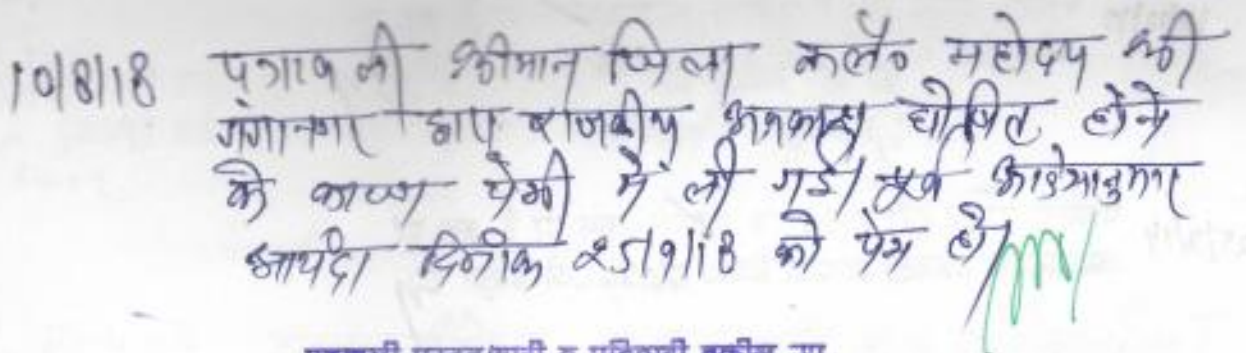 10/8/18 पत्रावली श्रीमान जिला कलेक्टर महोदय श्री
गंगानगर द्वारा राजकीय अवकाश घोषित होने
के कारण पेशी में ली गई। पूर्व आदेशानुसार
आयंदा दिनांक 25/9/18 को पेश हो।